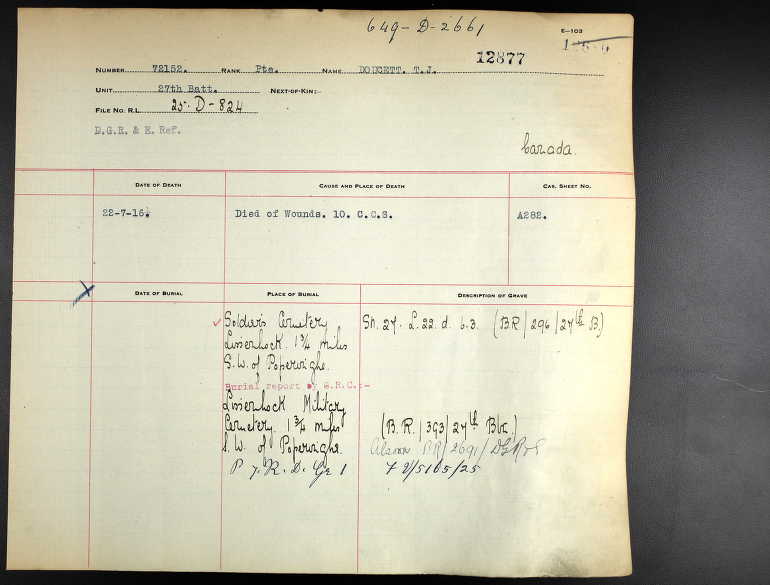 649-D-2661
E-103
12877
NUMBER 72152. RANK Pte. NAME DOUCETT. T.J.
UNIT 27th Batt. NEXT-OF-KIN:-
FILE NO. R.L. 25-D-824
D.G.R. & E. Ref.
Canada.
DATE OF DEATH CAUSE AND PLACE OF DEATH CAS. SHEET NO.
22-7-16. Died of Wounds. 10. C.C.S. A282.
DATE OF BURIAL PLACE OF BURIAL DESCRIPTION OF GRAVE
Soldiers Cemetery Sh. 27. L. 22. d. 6.3. (B.R/296/27th B.)
Lissenhock 1 3/4 miles
S.W. of Poperinghe.
Burial report by G.R.C.:-
Lissenhock Military
Cemetery. 1 3/4 miles (B.R./393/27th Btn.)
S.W. of Poperinghe.